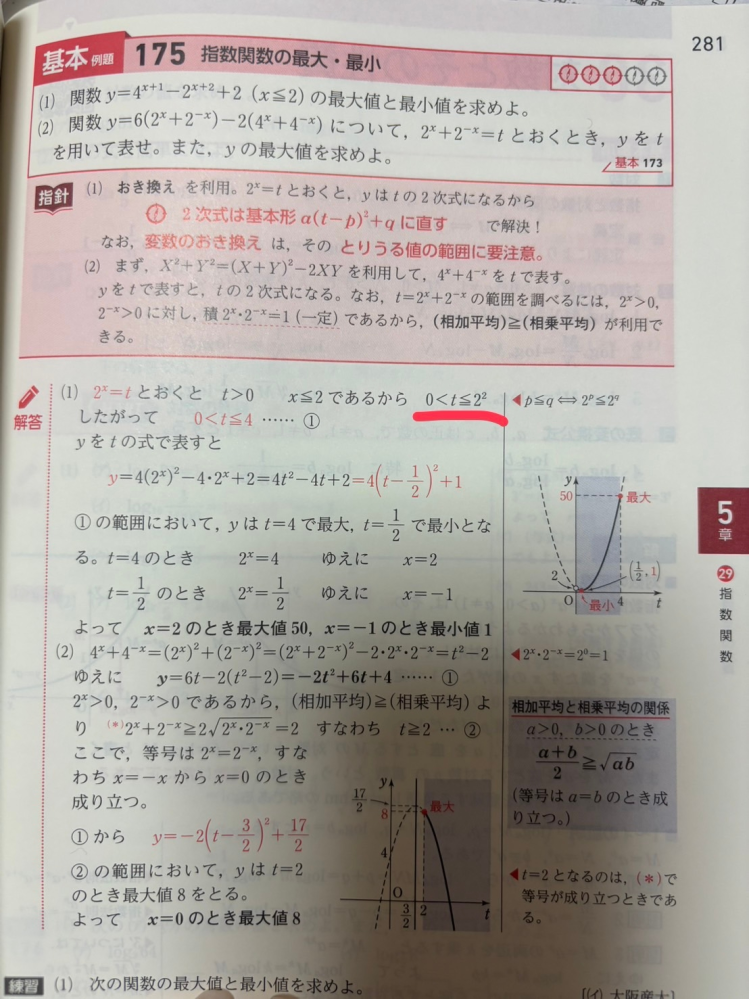 281
基本 例題 175 指数関数の最大・最小
(1) 関数 y=4^{x+1}−2^{x+2}+2 (x≦2) の最大値と最小値を求めよ。
(2) 関数 y=6(2^x+2^{−x})−2(4^x+4^{−x}) について，2^x+2^{−x}=t とおくとき，y を t
を用いて表せ。また，y の最大値を求めよ。
基本 173
指針
(1) おき換え を利用。2^x=t とおくと，y は t の 2 次式になるから
2 次式は基本形 a(t−p)²+q に直す で解決！
なお，変数のおき換え は，その とりうる値の範囲に要注意。
(2) まず，X²+Y²=(X+Y)²−2XY を利用して，4^x+4^{−x} を t で表す。
y を t で表すと，t の 2 次式になる。なお，t=2^x+2^{−x} の範囲を調べるには，2^x>0，
2^{−x}>0 に対し，積 2^x・2^{−x}=1 (一定) であるから，(相加平均)≧(相乗平均) が利用で
きる。
解答
(1) 2^x=t とおくと t>0 x≦2 であるから 0<t≦2²
◀ p≦q ⟺ 2^p≦2^q
したがって 0<t≦4 …… ①
y を t の式で表すと
y=4(2^x)²−4・2^x+2=4t²−4t+2=4(t−1/2)²+1
① の範囲において，y は t=4 で最大，t=1/2 で最小とな
る。t=4 のとき 2^x=4 ゆえに x=2
t=1/2 のとき 2^x=1/2 ゆえに x=−1
よって x=2 のとき最大値 50，x=−1 のとき最小値 1
y
50
最大
2
(1/2, 1)
O
最小
4
t
(2) 4^x+4^{−x}=(2^x)²+(2^{−x})²=(2^x+2^{−x})²−2・2^x・2^{−x}=t²−2
◀ 2^x・2^{−x}=2^0=1
ゆえに y=6t−2(t²−2)=−2t²+6t+4 …… ①
2^x>0，2^{−x}>0 であるから，(相加平均)≧(相乗平均) よ
り (*) 2^x+2^{−x}≧2√(2^x・2^{−x})=2 すなわち t≧2 … ②
ここで，等号は 2^x=2^{−x}，すな
わち x=−x から x=0 のとき
成り立つ。
① から y=−2(t−3/2)²+17/2
② の範囲において，y は t=2
のとき最大値 8 をとる。
よって x=0 のとき最大値 8
y
17/2
8
最大
4
O
3/2
2
t
相加平均と相乗平均の関係
a>0，b>0 のとき
(a+b)/2≧√ab
(等号は a=b のとき成
り立つ。)
◀ t=2 となるのは，(*) で
等号が成り立つときであ
る。
5
章
29
指
数
関
数
練習 (1) 次の関数の最大値と最小値を求めよ。
[(イ) 大阪産大]